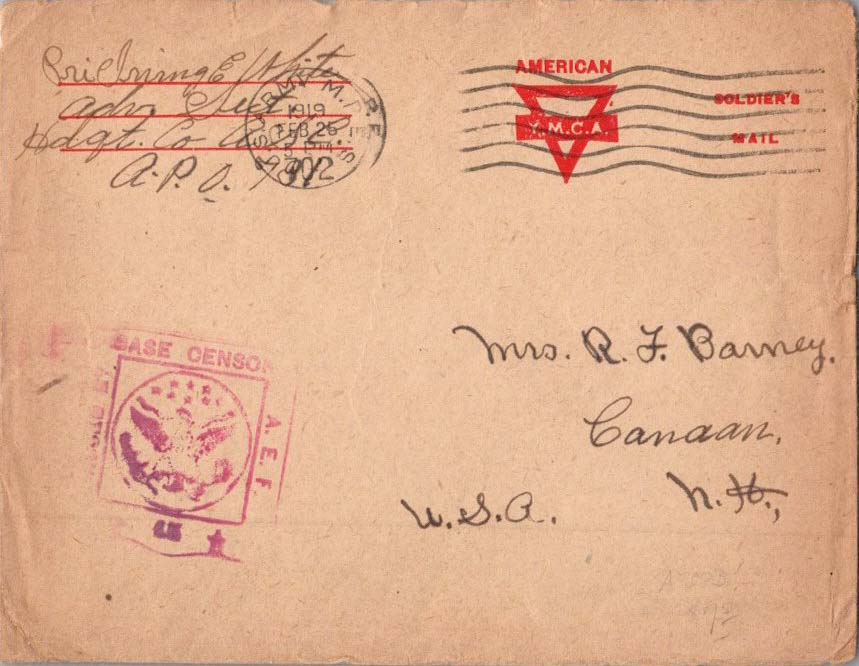 Pri Irving E White
Adv. Sect
Hdqt. Co
A.P.O.
U.S. ARMY M.P.E.S.
1919
FEB 25
902
AMERICAN
Y.M.C.A.
SOLDIER'S
MAIL
BASE CENSOR
A.E.F.
Mrs. R. F. Barney.
Canaan,
N.H.,
U.S.A.